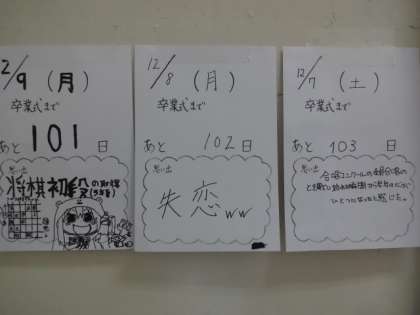 2/9 (月)
卒業式まで
あと 101 日
思い出
将棋初段の取得
12/8 (月)
卒業式まで
あと 102 日
思い出
失恋ww
12/7 (土)
卒業式まで
あと 103 日
思い出
合唱コンクールの
ひとつになったと感じた。